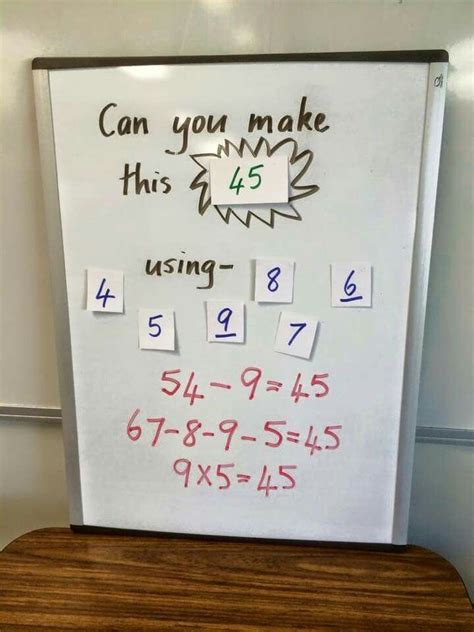 Can you make
this 45
using-
8 6
4
5 9 7
54-9=45
67-8-9-5=45
9x5=45